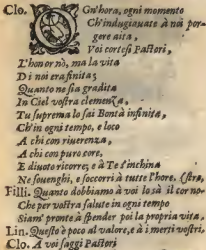 Clo. OGn'hora, ogni momento
Ch'indugiauate à noi por-
gere aita,
Voi cortesi Pastori,
L'honor nò, ma la vita
Di noi era finita;
Quanto ne sia gradita
In Ciel vostra clemenza,
Tu suprema lo sai Bontà infinita,
Ch'in ogni tempo, e loco
A chi con riuerenza,
A chi con puro core,
E diuoto ricorre; e à Te s'inchina
Ne souenghi, e soccorri à tutte l'hore. (stra,
Filli. Quanto dobbiamo à voi lo sà il cor no-
Che per vostra salute in ogni tempo
Siam' pronte à spender poi la propria vita.
Lin. Questo è poco al valore, e à i merti vostri,
Clo. A voi saggi Pastori